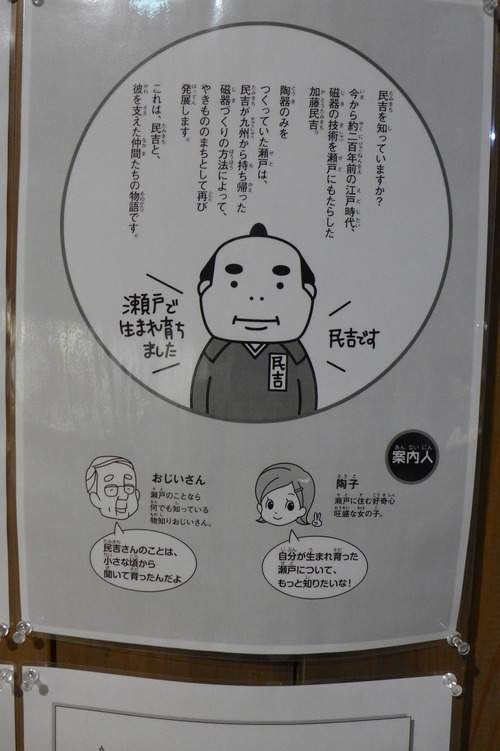 民吉を知っていますか?
今から約二百年前の江戸時代、
磁器の技術を瀬戸にもたらした
加藤民吉。
陶器のみを
つくっていた瀬戸は、
民吉が九州から持ち帰った
磁器づくりの方法によって、
やきもののまちとして再び
発展します。
これは、民吉と、
彼を支えた仲間たちの物語です。
瀬戸で
生まれ育ち
ました
民吉です
民吉
案内人
おじいさん
瀬戸のことなら
何でも知っている
物知りおじいさん。
民吉さんのことは、
小さな頃から
聞いて育ったんだよ
陶子
瀬戸に住む好奇心
旺盛な女の子。
自分が生まれ育った
瀬戸について、
もっと知りたいな!